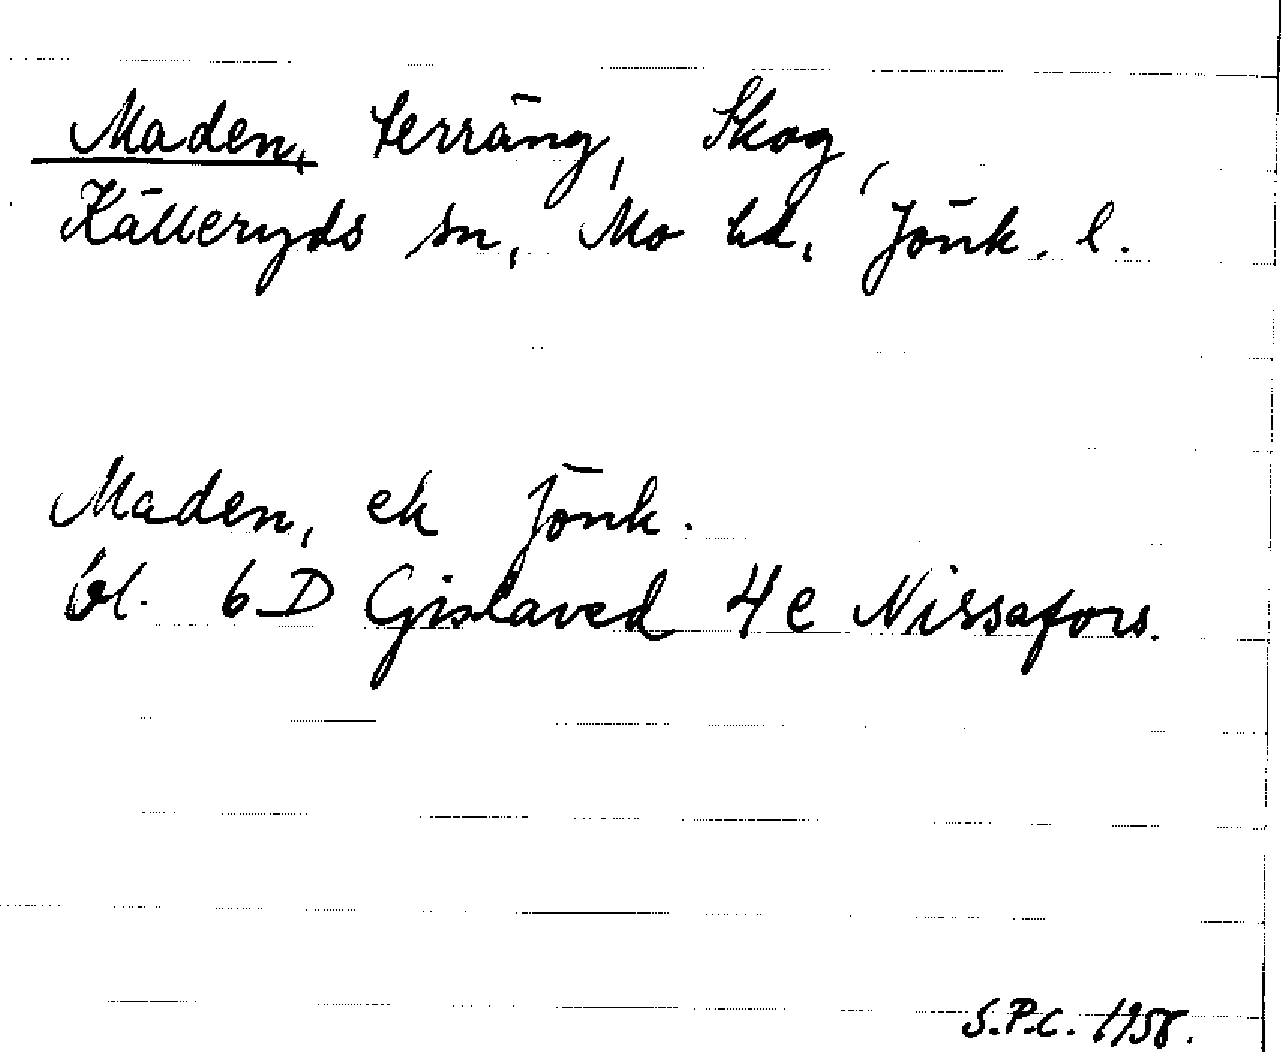 Maden, terräng, Skog,
Källeryds sn, Mo hd, Jönk. l.
Maden, ek Jönk.
bl. 6 D Gislaved 4 e Nissafors.
S.P.C. 1958.